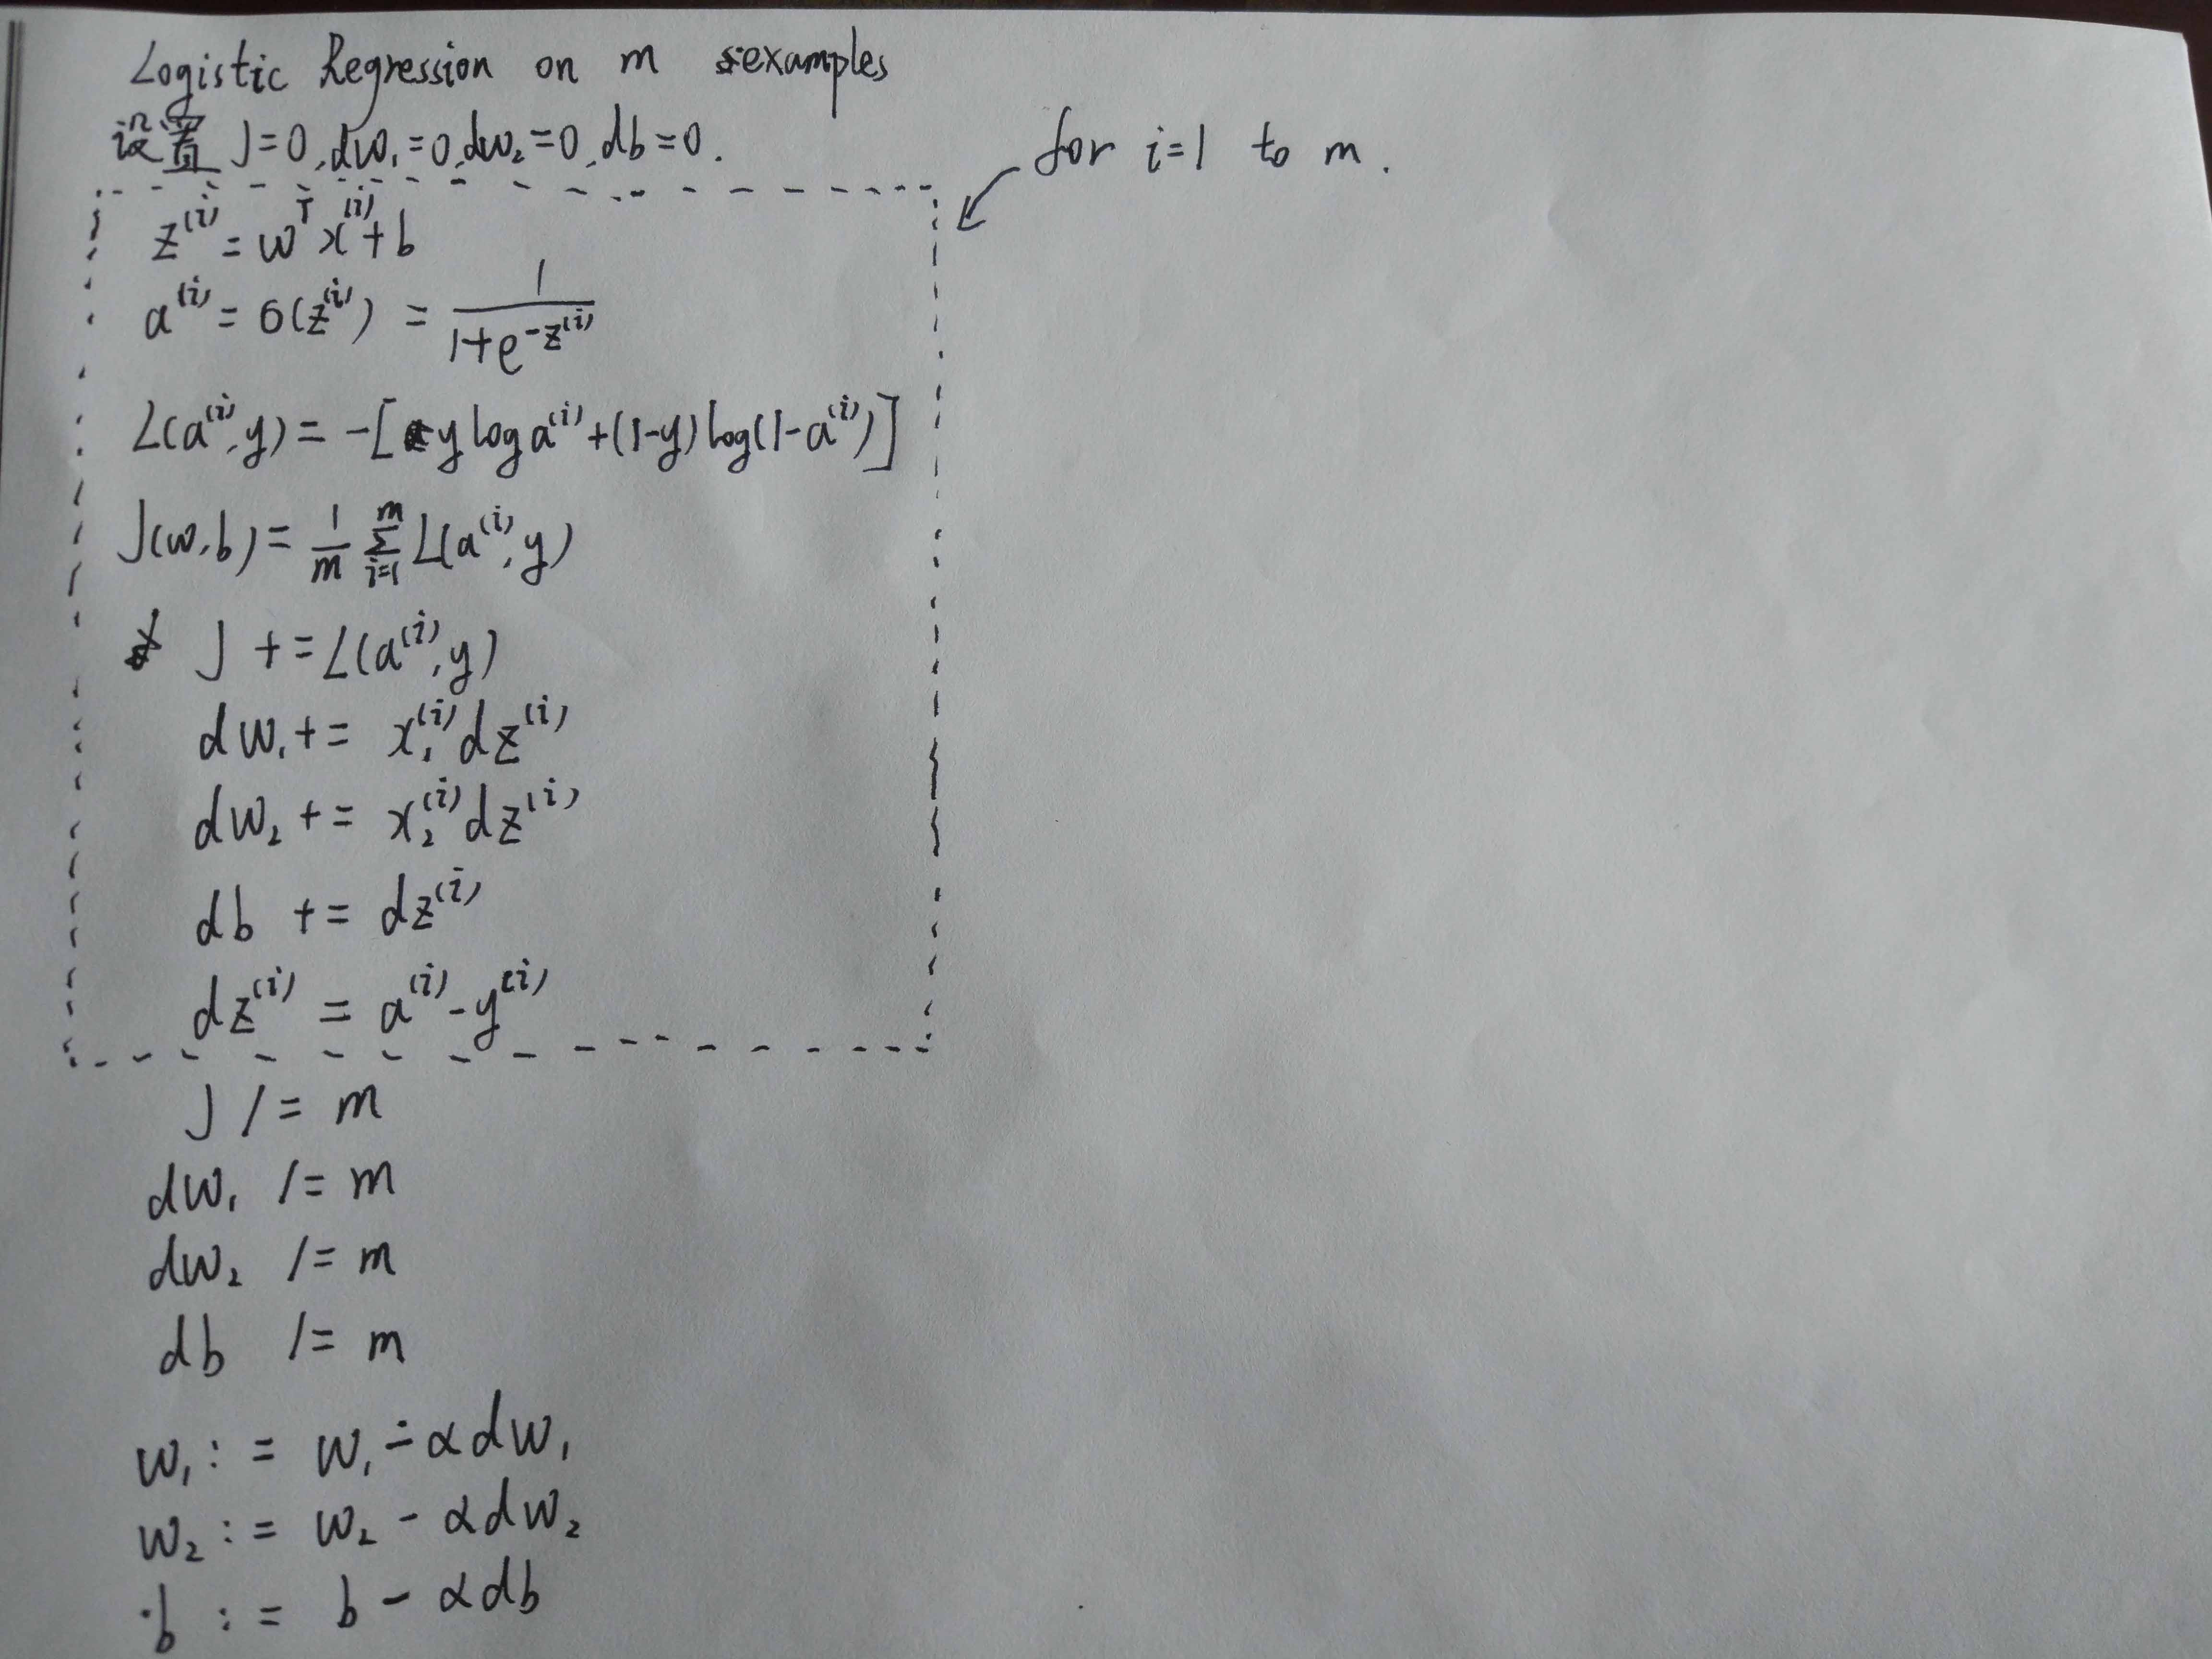 Logistic Regression on m examples
设置 J=0, dw₁=0, dw₂=0, db=0.
for i=1 to m.
z⁽ⁱ⁾ = wᵀx⁽ⁱ⁾+b
a⁽ⁱ⁾ = σ(z⁽ⁱ⁾) = 1/(1+e^(-z⁽ⁱ⁾))
L(a⁽ⁱ⁾, y) = -[y log a⁽ⁱ⁾+(1-y) log(1-a⁽ⁱ⁾)]
J(w,b) = 1/m Σᵢ₌₁ᵐ L(a⁽ⁱ⁾, y)
J += L(a⁽ⁱ⁾, y)
dw₁ += x₁⁽ⁱ⁾dz⁽ⁱ⁾
dw₂ += x₂⁽ⁱ⁾dz⁽ⁱ⁾
db += dz⁽ⁱ⁾
dz⁽ⁱ⁾ = a⁽ⁱ⁾-y⁽ⁱ⁾
J /= m
dw₁ /= m
dw₂ /= m
db /= m
w₁ := w₁ - αdw₁
w₂ := w₂ - αdw₂
b := b - αdb